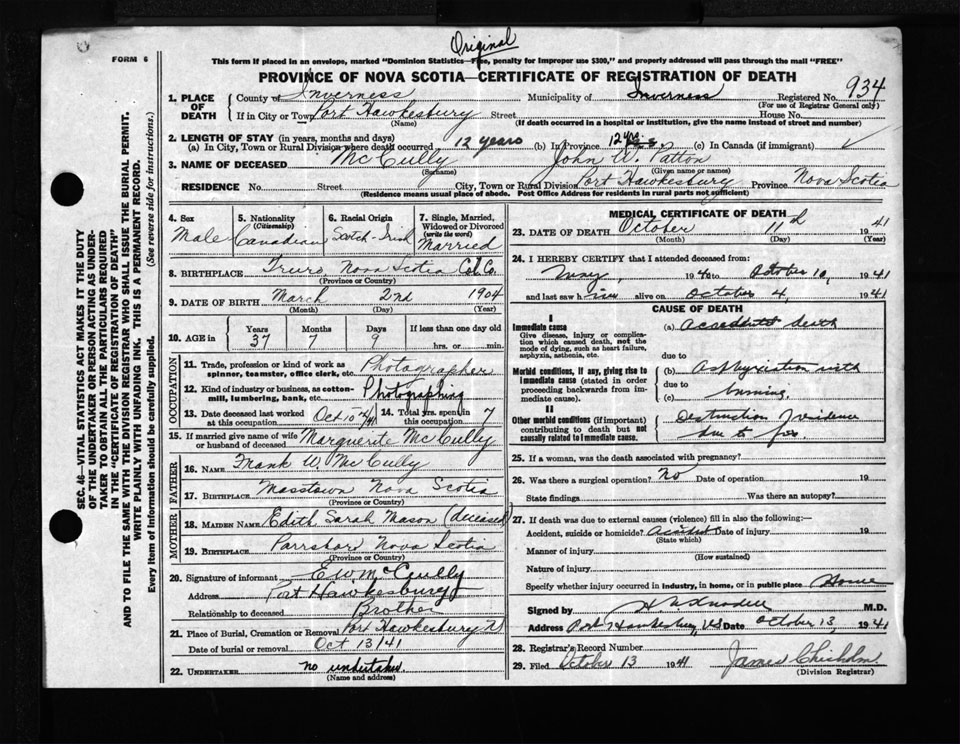 Original
FORM 6
This form if placed in an envelope, marked "Dominion Statistics—Free, penalty for improper use $300," and properly addressed will pass through the mail "FREE"
PROVINCE OF NOVA SCOTIA—CERTIFICATE OF REGISTRATION OF DEATH
SEC. 46—VITAL STATISTICS ACT MAKES IT THE DUTY
OF THE UNDERTAKER OR PERSON ACTING AS UNDER-
TAKER TO OBTAIN ALL THE PARTICULARS REQUIRED
IN THE "CERTIFICATE OF REGISTRATION OF DEATH"
AND TO FILE THE SAME WITH THE DIVISION REGISTRAR WHO SHALL ISSUE THE BURIAL PERMIT.
WRITE PLAINLY WITH UNFADING INK. THIS IS A PERMANENT RECORD.
Every item of Information should be carefully supplied. (See reverse side for instructions.)
1. PLACE OF DEATH County of Inverness Municipality of Inverness Registered No. 934
(For use of Registrar General only)
If in City or Town Port Hawkesbury Street House No.
(Name) (If death occurred in a hospital or institution, give the name instead of street and number)
2. LENGTH OF STAY (in years, months and days)
(a) In City, Town or Rural Division where death occurred 12 years (b) In Province 12 yrs. (c) In Canada (if immigrant)
3. NAME OF DECEASED McCully John W. Patton
(Surname) (Given name or names)
RESIDENCE No. Street City, Town or Rural Division Port Hawkesbury Province Nova Scotia
(Residence means usual place of abode. Post Office Address for residents in rural parts not sufficient)
4. Sex Male
5. Nationality (Citizenship) Canadian
6. Racial Origin Scotch-Irish
7. Single, Married, Widowed or Divorced (write the word) Married
8. BIRTHPLACE Truro, Nova Scotia Col. Co.
(Province or Country)
9. DATE OF BIRTH March 2nd 1904
(Month) (Day) (Year)
10. AGE in Years Months Days If less than one day old
37 7 9 hrs. or min.
OCCUPATION
11. Trade, profession or kind of work as spinner, teamster, office clerk, etc. Photographer
12. Kind of industry or business, as cotton-mill, lumbering, bank, etc. Photographing
13. Date deceased last worked at this occupation Oct 10th/41 14. Total yrs. spent in this occupation 7
15. If married give name of wife or husband of deceased Marguerite McCully
FATHER
16. NAME Frank W. McCully
17. BIRTHPLACE Masstown Nova Scotia
(Province or Country)
MOTHER
18. MAIDEN NAME Edith Sarah Mason (deceased)
19. BIRTHPLACE Parrsboro Nova Scotia
(Province or Country)
20. Signature of informant E W McCully
Address Port Hawkesbury
Relationship to deceased Brother
21. Place of Burial, Cremation or Removal Port Hawkesbury
Date of burial or removal Oct 13/41
22. UNDERTAKER no undertaker.
(Name and address)
MEDICAL CERTIFICATE OF DEATH
23. DATE OF DEATH October 11th 1941
(Month) (Day) (Year)
24. I HEREBY CERTIFY that I attended deceased from:
May, 1940 to October 10, 1941
and last saw him alive on October 4, 1941
CAUSE OF DEATH
I
Immediate cause (a) Accidental death
Give disease, injury or complication which caused death, not the mode of dying, such as heart failure, asphyxia, asthenia, etc.
due to
Morbid conditions, if any, giving rise to immediate cause (stated in order proceeding backwards from immediate cause). (b) Asphyxiation with
due to
(c) burning.
II
Other morbid conditions (if important) contributing to death but not causally related to immediate cause. Destruction of residence
due to fire
25. If a woman, was the death associated with pregnancy?
26. Was there a surgical operation? No Date of operation 19
State findings Was there an autopsy?
27. If death was due to external causes (violence) fill in also the following:—
Accident, suicide or homicide? Accident Date of injury 19
(State which)
Manner of injury
(How sustained)
Nature of injury
Specify whether injury occurred in industry, in home, or in public place Home
Signed by M.D.
Address Port Hawkesbury, NS Date October 13, 1941
28. Registrar's Record Number
29. Filed October 13 1941 James Chisholm
(Division Registrar)